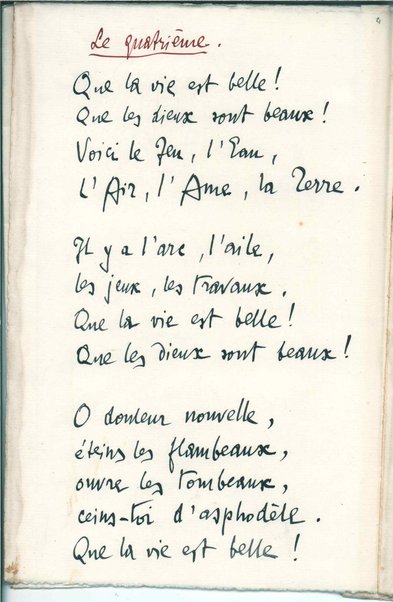 Le quatrième.
Que la vie est belle !
Que les dieux sont beaux !
Voici le Feu, l'Eau,
L'Air, l'Ame, la Terre.
Il y a l'arc, l'aile,
les jeux, les travaux.
Que la vie est belle !
Que les dieux sont beaux !
O douleur nouvelle,
éteins les flambeaux,
ouvre les tombeaux,
ceins-toi d'asphodèle.
Que la vie est belle !